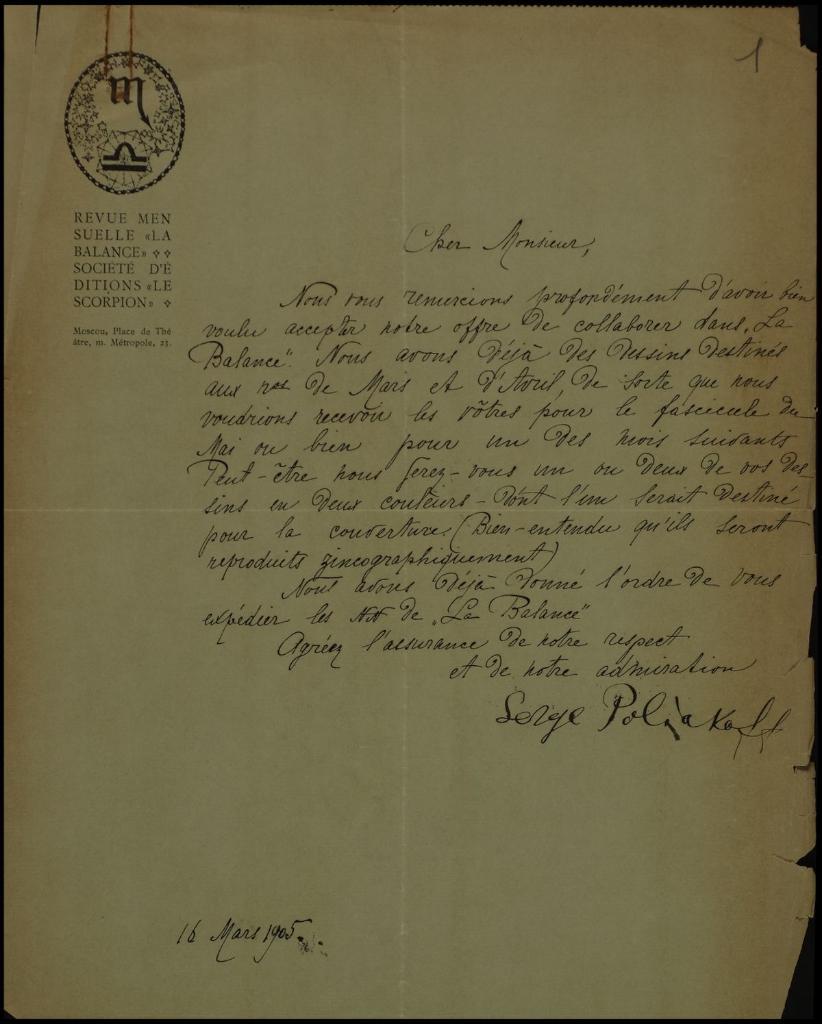 1
REVUE MEN
SUELLE «LA
BALANCE»
SOCIÉTÉ D'É
DITIONS «LE
SCORPION»
Moscou, Place de Thé
âtre, m. Métropole, 23.
Cher Monsieur,
Nous vous remercions profondément d'avoir bien
voulu accepter notre offre de collaborer dans „La
Balance". Nous avons déjà des dessins destinés
aux nos de Mars et d'Avril, de sorte que nous
voudrions recevoir les vôtres pour le fascicule du
Mai ou bien pour un des mois suivants
Peut-être nous ferez-vous un ou deux de vos des-
sins en deux couleurs - dont l'un serait destiné
pour la couverture. (Bien-entendu qu'ils seront
reproduits zincographiquement)
Nous avons déjà donné l'ordre de vous
expédier les NN de „La Balance"
Agréez l'assurance de notre respect
et de notre admiration
Serge Poliakoff
16 Mars 1905.